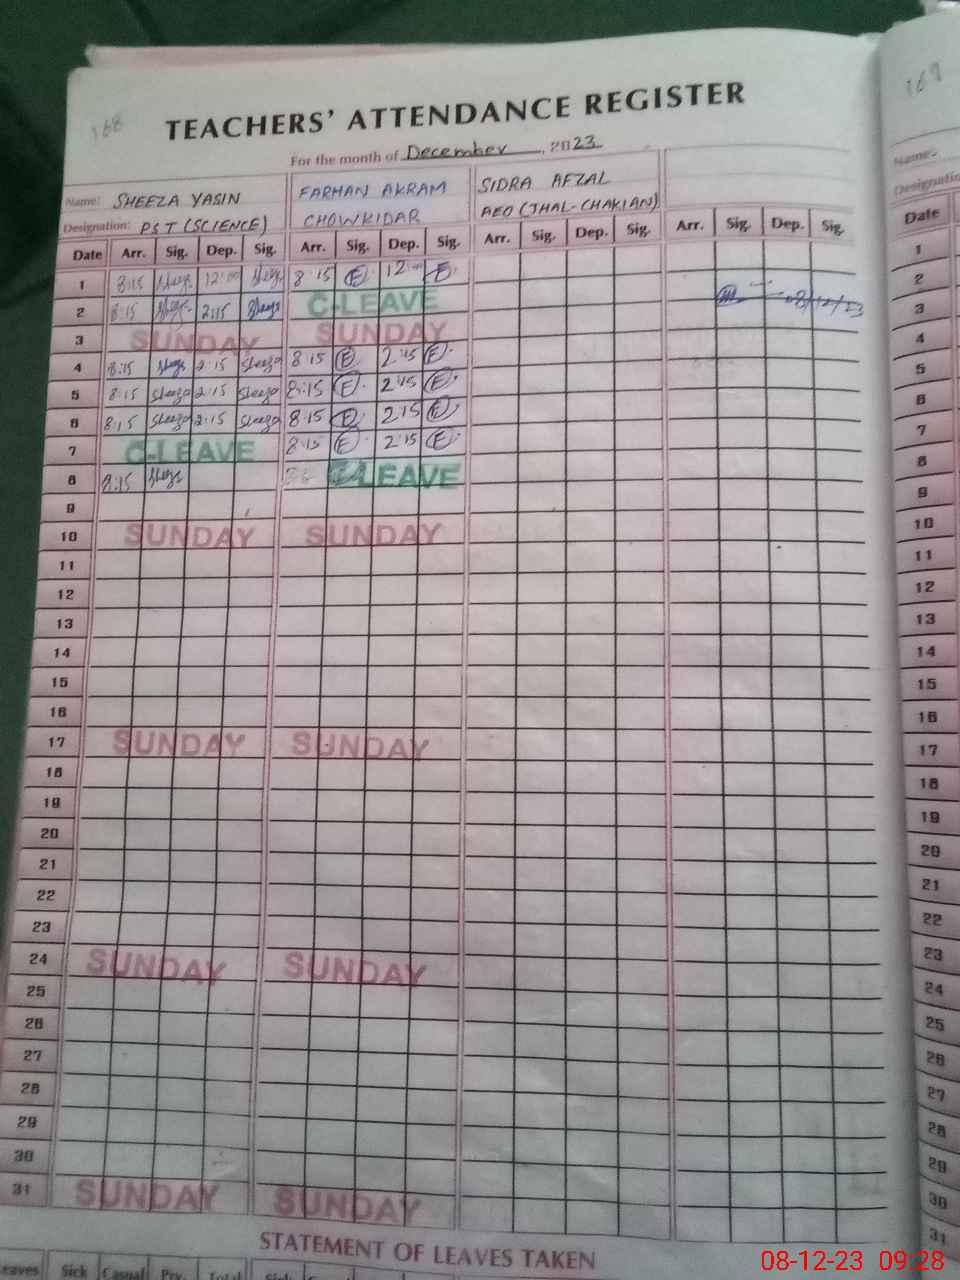 168
169
TEACHERS' ATTENDANCE REGISTER
For the month of December, 2023
Name: SHEEZA YASIN FARHAN AKRAM SIDRA AFZAL
Designation: PST (SCIENCE) CHOWKIDAR AEO (JHAL-CHAKIAN)
Name:-
Designation
Date Arr. Sig. Dep. Sig. Arr. Sig. Dep. Sig. Arr. Sig. Dep. Sig. Arr. Sig. Dep. Sig. Date
1 8:15 12:00 8:15 E 12:00 E 1
2 8:15 2:15 C-LEAVE 2
3 SUNDAY SUNDAY 08/12/23 3
4 8:15 2:15 Sheeza 8:15 E 2:45 E 4
5 8:15 Sheeza 2:15 Sheeza 8:15 E 2:45 E 5
6 8:15 Sheeza 2:15 Sheeza 8:15 E 2:15 E 6
7 C-LEAVE 8:15 E 2:15 E 7
8 8:15 C-LEAVE 8
9 9
10 SUNDAY SUNDAY 10
11 11
12 12
13 13
14 14
15 15
16 16
17 SUNDAY SUNDAY 17
18 18
19 19
20 20
21 21
22 22
23 23
24 SUNDAY SUNDAY 24
25 25
26 26
27 27
28 28
29 29
30 30
31 SUNDAY SUNDAY 31
STATEMENT OF LEAVES TAKEN
eaves Sick Casual Prv. Total Sick
08-12-23 09:28